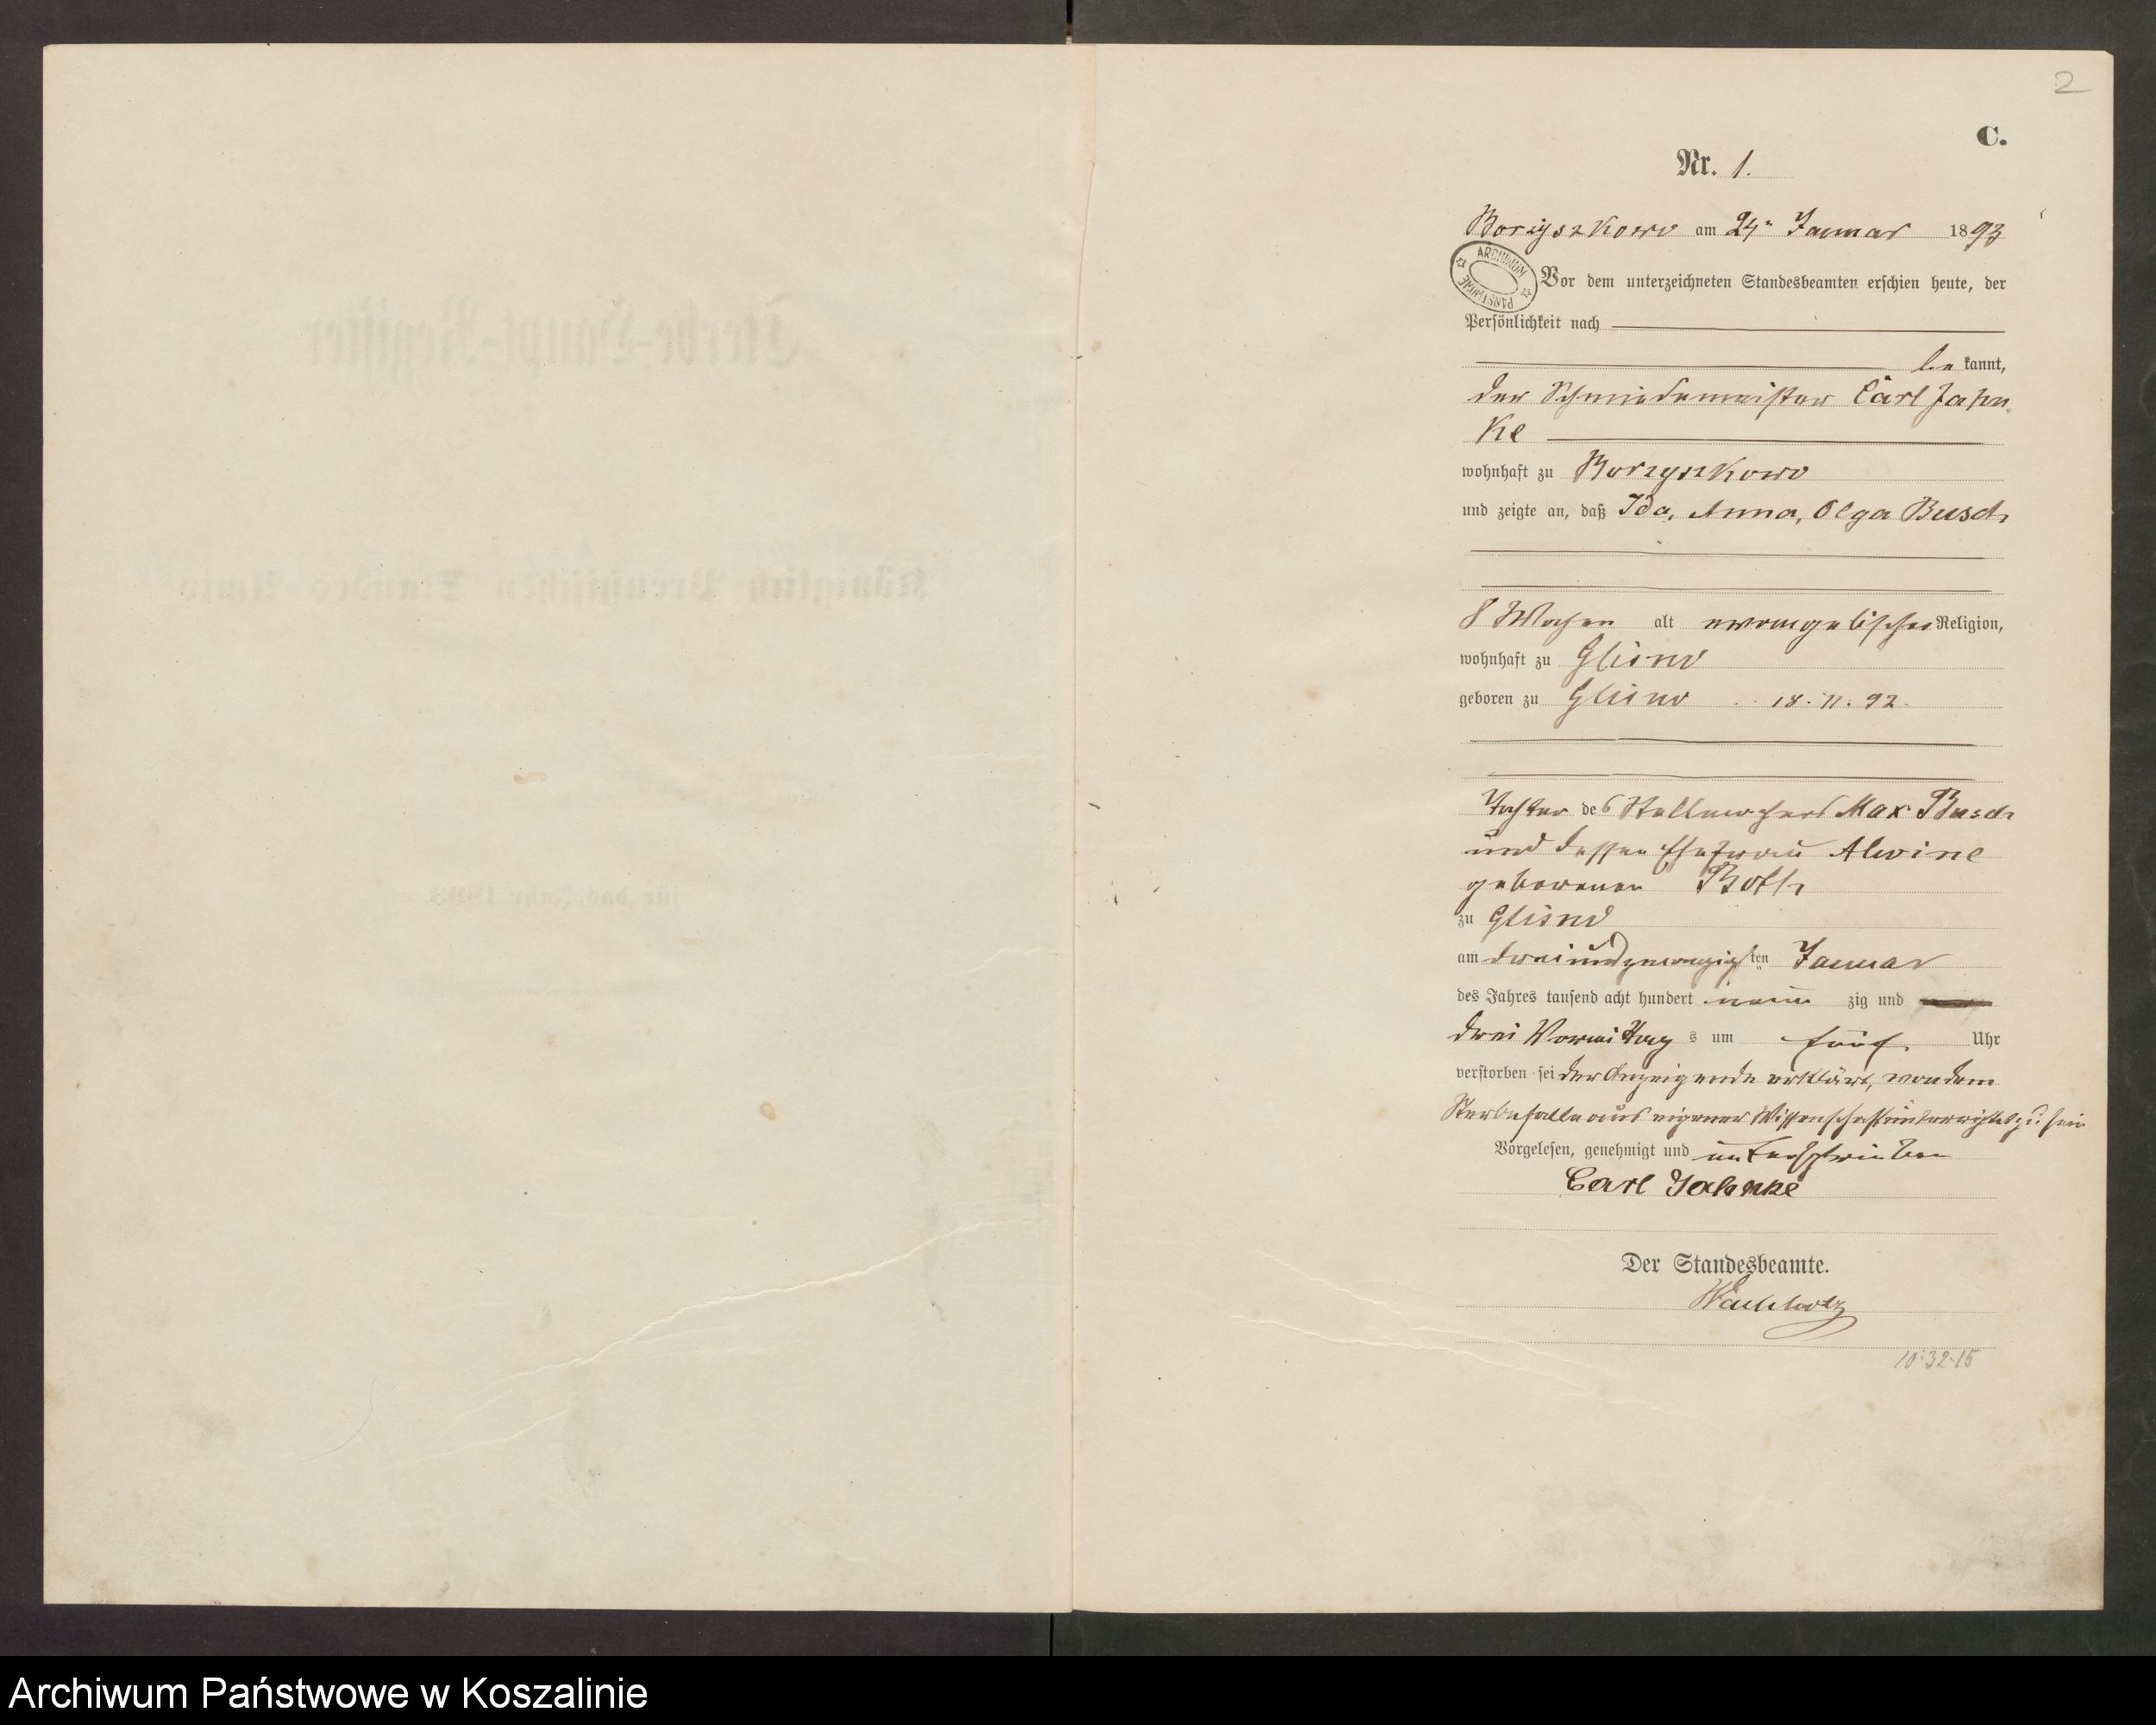 2
C.
Nr. 1.
Borzyszkowo am 24n Januar 1893
ARCHIWUM PAŃSTWOWE
Vor dem unterzeichneten Standesbeamten erschien heute, der
Persönlichkeit nach
be kannt,
der Schmiedemeister Carl Jahn-
ke
wohnhaft zu Borzyszkowo
und zeigte an, daß Ida, Anna, Olga Busch
8 Wochen alt evangelischer Religion,
wohnhaft zu Glisno
geboren zu Glisno 18. 11. 92.
Tochter des Stellmachers Max Busch
und dessen Ehefrau Alwine
geborenen Both
zu Glisno
am dreiundzwanzigsten Januar
des Jahres tausend acht hundert neun zig und
drei Vormittag s um fünf Uhr
verstorben sei der Anzeigende erklärt, von dem
Sterbefalle aus eigener Wissenschaft unterrichtet zu sein
Vorgelesen, genehmigt und unterschrieben
Carl Jahnke
Der Standesbeamte.
10.32.15
Sterbe-Haupt-Register
Königlich Preußischen Standes-Amts
für das Jahr 1893
Archiwum Państwowe w Koszalinie